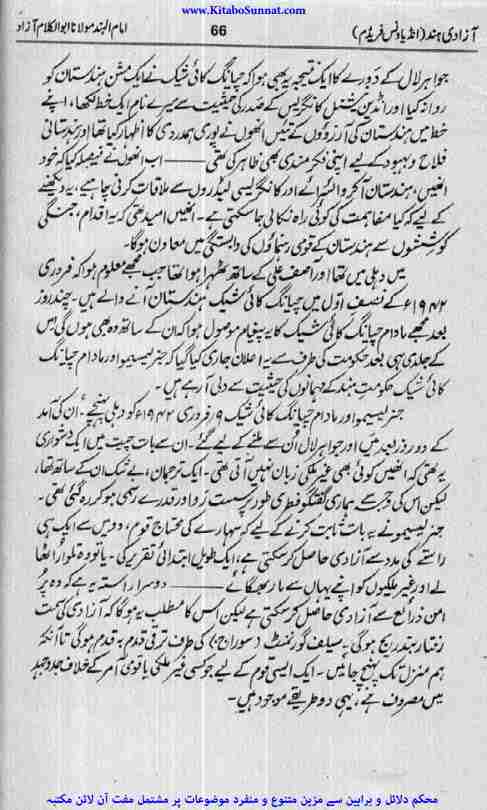 www.KitaboSunnat.com
آزادی ہند (انڈیا ونس فریڈم)
66
امام الہند مولانا ابوالکلام آزاد
جواہر لال کے دورے کا ایک نتیجہ یہ بھی ہوا کہ چیانگ کائی شیک نے ایک مشن ہندستان کو
روانہ کیا اور انڈین نیشنل کانگریس کے صدر کی حیثیت سے میرے نام ایک خط لکھا، اپنے
خط میں ہندستان کی آرزوؤں کے تئیں انھوں نے پوری ہمدردی کا اظہار کیا تھا اور ہندستانی
فلاح و بہبود کے لیے اپنی فکر مندی بھی ظاہر کی تھی ——— اب انھوں نے فیصلہ کیا کہ خود
انھیں، ہندستان آ کر وائسرائے اور کانگریسی لیڈروں سے ملاقات کرنی چاہیے، یہ دیکھنے
کے لیے کہ کیا مفاہمت کی کوئی راہ نکالی جا سکتی ہے۔ انھیں امید تھی کہ یہ اقدام، جنگی
کوششوں سے ہندستان کے قومی رہنماؤں کی وابستگی میں معاون ہوگا۔
میں دہلی میں تھا اور آصف علی کے ساتھ ٹھہرا ہوا تھا جب مجھے معلوم ہوا کہ فروری
۱۹۴۲ء کے نصف اوّل میں چیانگ کائی شیک ہندستان آنے والے ہیں۔ چند روز
بعد مجھے مادام چیانگ کائی شیک کا یہ پیغام موصول ہوا کہ ان کے ساتھ وہ بھی ہوں گی جس
کے جلد ہی بعد حکومت کی طرف سے یہ اعلان جاری کیا گیا کہ جنرلیسیمو اور مادام چیانگ
کائی شیک حکومتِ ہند کے مہمانوں کی حیثیت سے دلی آ رہے ہیں۔
جنرلیسیمو اور مادام چیانگ کائی شیک ۹ فروری ۱۹۴۲ء کو دہلی پہنچے، ان کی آمد
کے دو روز بعد میں اور جواہر لال اُن سے ملنے کے لیے گئے۔ ان سے بات چیت میں ایک دشواری
یہ تھی کہ انھیں کوئی بھی غیر ملکی زبان نہیں آتی تھی۔ ایک ترجمان، بے شک ان کے ساتھ تھا،
لیکن اس کی وجہ سے ہماری گفتگو فطری طور پر سست رَو اور قدرے رسمی ہو کر رہ گئی تھی۔
جنرلیسیمو نے یہ بات ثابت کرنے کے لیے کہ سہارے کی محتاج قوم، دو میں سے ایک ہی
راستے کی مدد سے آزادی حاصل کر سکتی ہے، ایک طویل ابتدائی تقریر کی۔ یا تو وہ تلوار اُٹھا
لے اور غیر ملکیوں کو اپنے یہاں سے مار بھگائے ——— دوسرا راستہ یہ ہے کہ وہ پُر
امن ذرائع سے آزادی حاصل کر سکتی ہے لیکن اس کا مطلب یہ ہوگا کہ آزادی کی سمت
رفتار بتدریج ہوگی یہ سیلف گورنمنٹ (سوراج) کی طرف ترقی قدم بہ قدم ہوگی تا آنکہ
ہم منزل تک پہنچ جائیں۔ ایک ایسی قوم کے لیے جو کسی غیر ملکی یا قومی آمر کے خلاف جدوجہد
میں مصروف ہے، یہی دو طریقے موجود ہیں۔
محکم دلائل و براہین سے مزین متنوع و منفرد موضوعات پر مشتمل مفت آن لائن مکتبہ